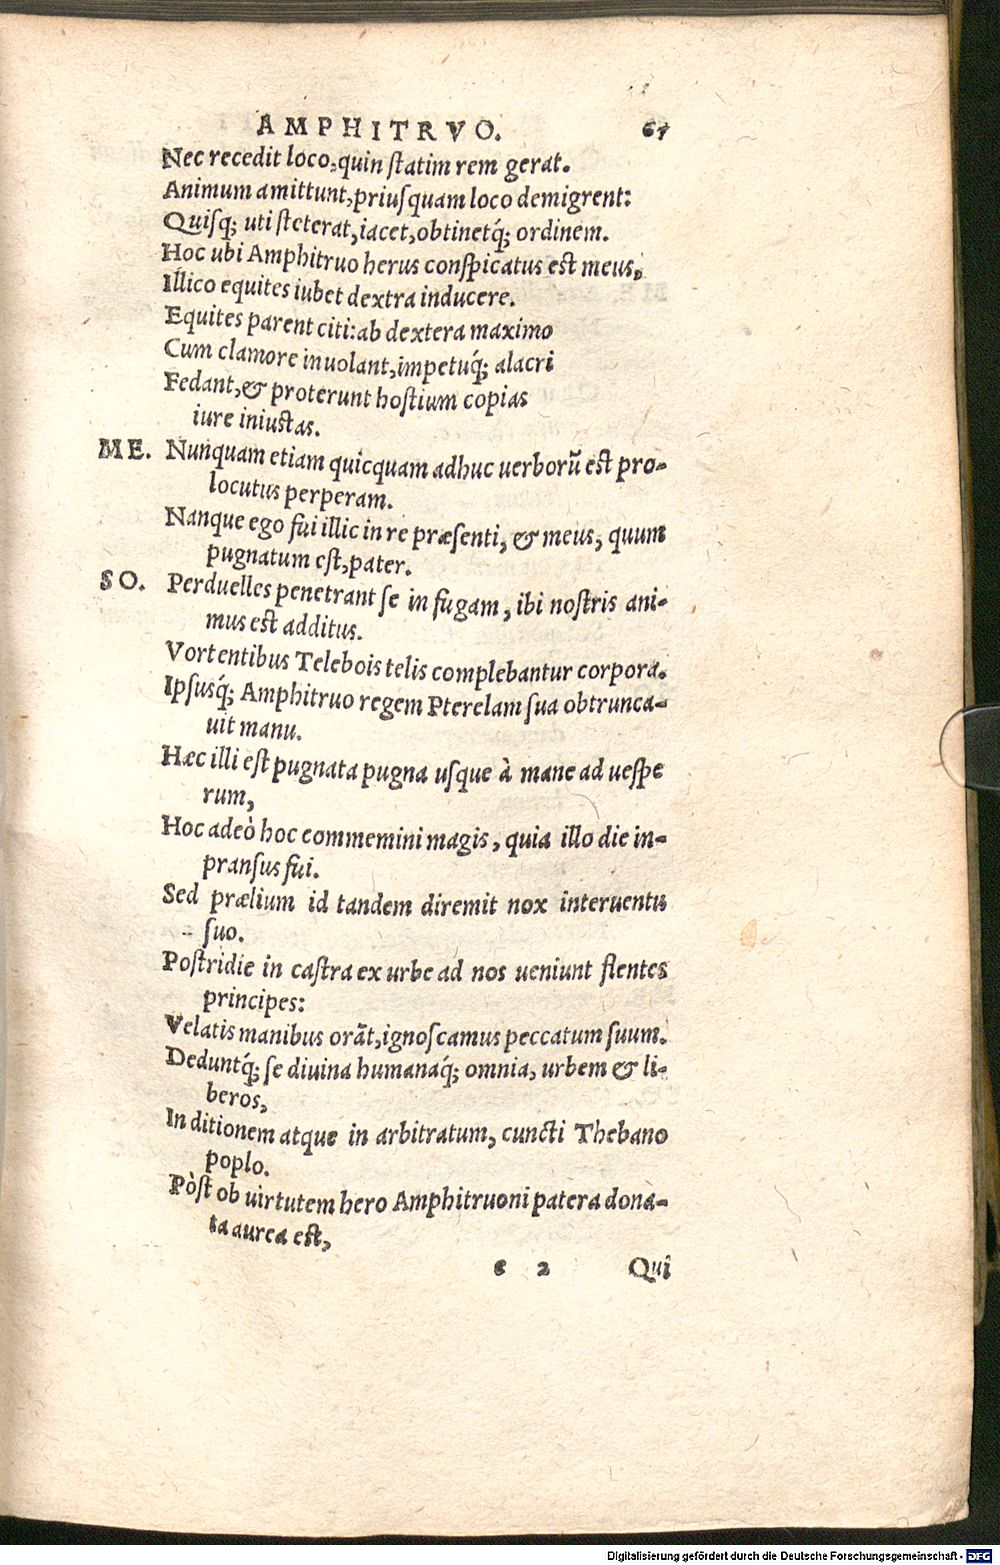 AMPHITRVO. 67
Nec recedit loco, quin statim rem gerat.
Animum amittunt, priusquam loco demigrent:
Quisq; uti steterat, iacet, obtinetq́; ordinem.
Hoc ubi Amphitruo herus conspicatus est meus,
Illico equites iubet dextra inducere.
Equites parent citi: ab dextera maximo
Cum clamore inuolant, impetuq́; alacri
Fedant, & proterunt hostium copias
iure iniustas.
ME. Nunquam etiam quicquam adhuc uerborū est pro-
locutus perperam.
Nanque ego fui illic in re præsenti, & meus, quum
pugnatum est, pater.
SO. Perduelles penetrant se in fugam, ibi nostris ani-
mus est additus.
Vortentibus Telebois telis complebantur corpora.
Ipsusq́; Amphitruo regem Pterelam sua obtrunca-
uit manu.
Hæc illi est pugnata pugna usque à mane ad uespe
rum,
Hoc adeò hoc commemini magis, quia illo die in-
pransus fui.
Sed prælium id tandem diremit nox interuentu
suo.
Postridie in castra ex urbe ad nos ueniunt flentes
principes:
Velatis manibus orāt, ignoscamus peccatum suum.
Deduntq́; se diuina humanaq́; omnia, urbem & li-
beros,
In ditionem atque in arbitratum, cuncti Thebano
poplo.
Pòst ob uirtutem hero Amphitruoni patera dona-
ta aurea est,
e 2 Qui
Digitalisierung gefördert durch die Deutsche Forschungsgemeinschaft - DFG